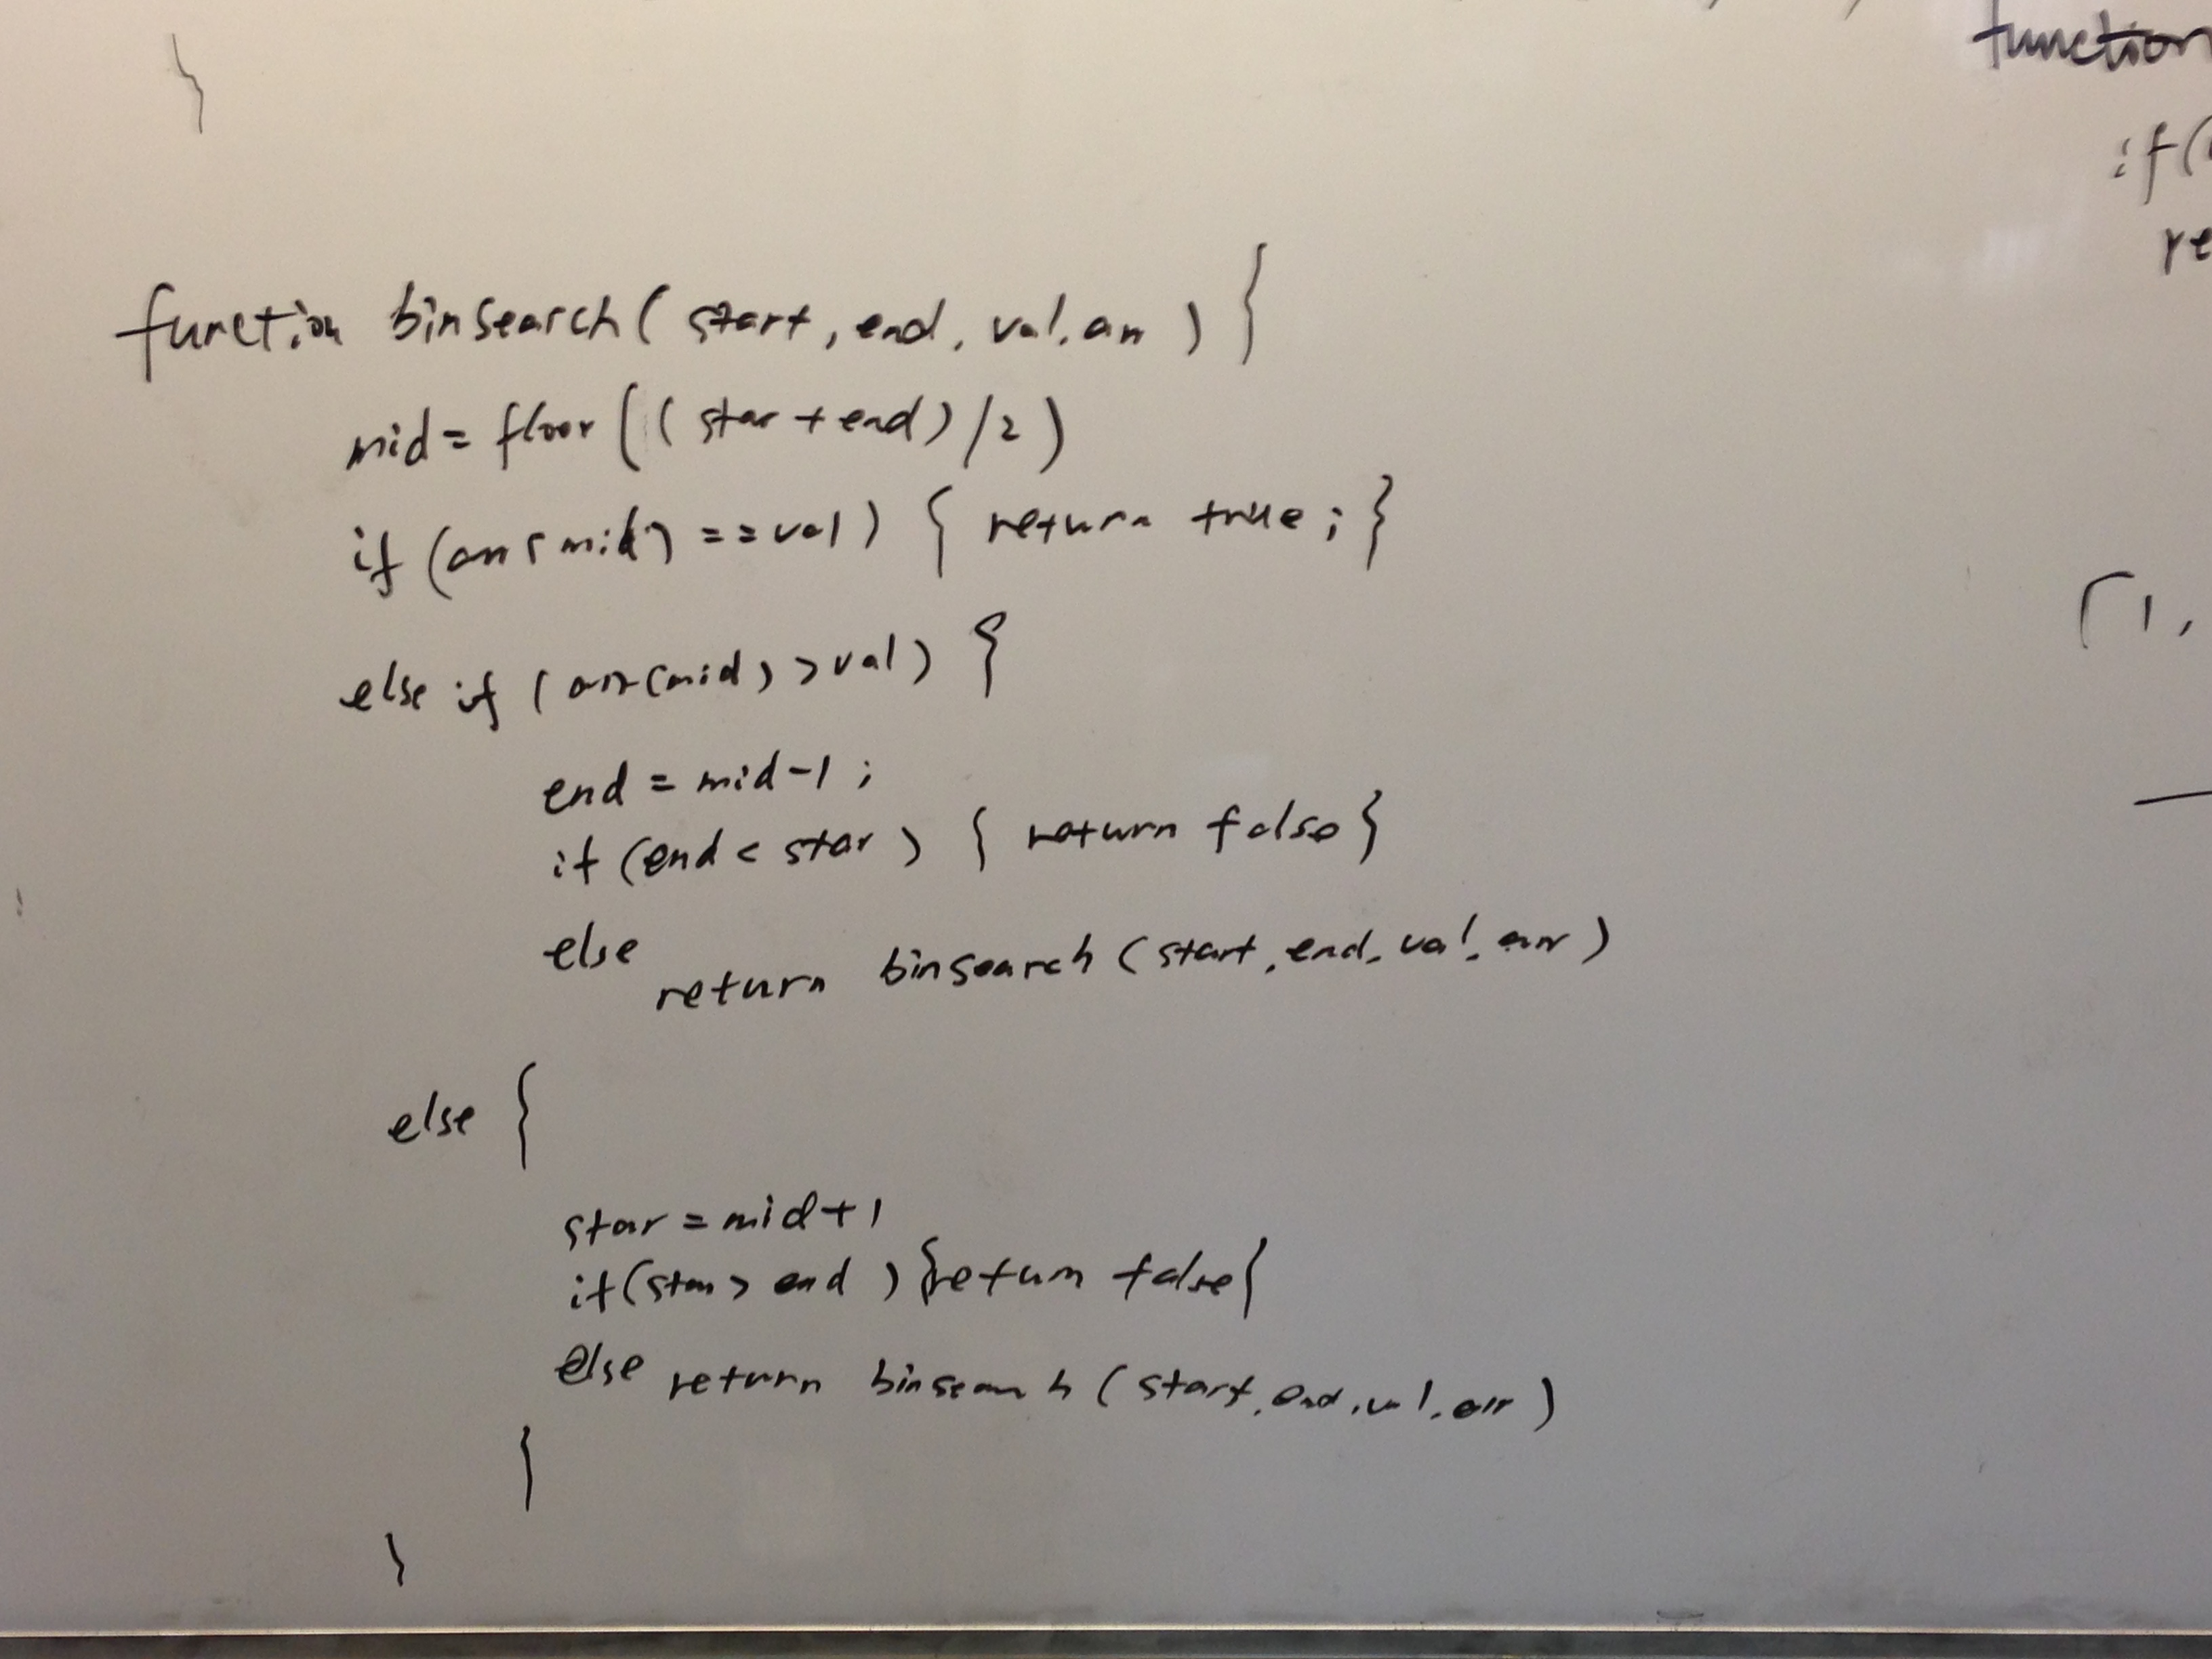 }
function
if(
re
function binsearch( start, end, val, arr ) {
mid = floor(( star + end) /2 )
if (arr[mid] == val) { return true; }
[1,
else if (arr[mid] > val) {
end = mid-1 ;
if (end < star ) { return false }
else
return binsearch (start, end, val, arr )
else {
star = mid+1
if (star > end ) {return false}
else return binsearch (start, end, val, arr )
}
}